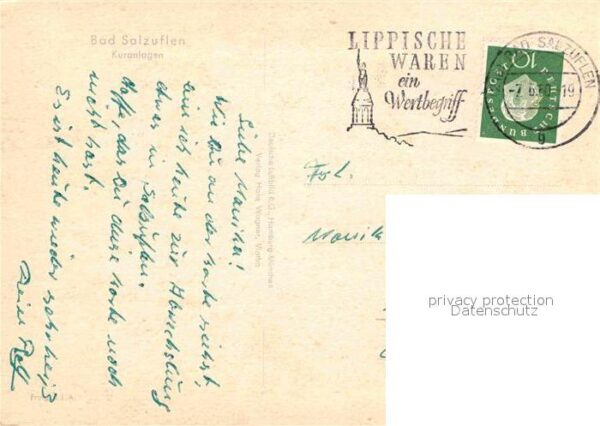 Bad Salzuflen
Kuranlagen
LIPPISCHE
WAREN
ein
Wertbegriff
BAD SALZUFLEN
-7.6.60-19
g
DEUTSCHE BUNDESPOST
10
Liebe Monika!
Wie Du an der Karte siehst,
bin ich heute zur Abwechslung
etwas in Salzuflen.
Hoffe, das Du diese Karte noch
nicht hast.
Es ist heute wieder sehr heiß
Deine
Deutsche Luftbild K.G., Hamburg-München
Verlag Hans Wagner, Vlotho
Frl.
Monika
privacy protection
Datenschutz